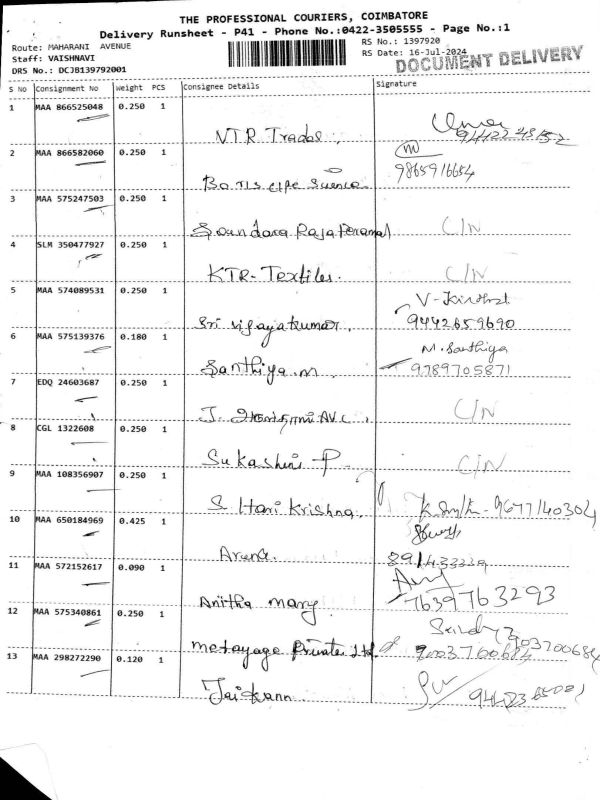 THE PROFESSIONAL COURIERS, COIMBATORE
Delivery Runsheet - P41 - Phone No.:0422-3505555 - Page No.:1
Route: MAHARANI AVENUE
Staff: VAISHNAVI
DRS No.: DCJB139792001
RS No.: 1397920
RS Date: 16-Jul-2024
DOCUMENT DELIVERY
S No Consignment No Weight PCS Consignee Details Signature
1 MAA 866525048 0.250 1
VTR Trades,
2 MAA 866582060 0.250 1
9865916654
3 MAA 575247503 0.250 1
Soundara Raja Perumal C/N
4 SLM 350477927 0.250 1
KTR-Textiles. C/N
5 MAA 574089531 0.250 1
Sri vijayakumar. 9442659690
6 MAA 575139376 0.180 1 M. Santhiya
Santhiya.m 9789705871
7 EDQ 24603687 0.250 1
J. C/N
8 CGL 1322608 0.250 1
Sukashini P C/N
9 MAA 108356907 0.250 1
S Hari Krishna. 9677140304
10 MAA 650184969 0.425 1
Aruna.
11 MAA 572152617 0.090 1
Anitha mary 7639763293
12 MAA 575340861 0.250 1
Private Ltd 9003700684
13 MAA 298272290 0.120 1